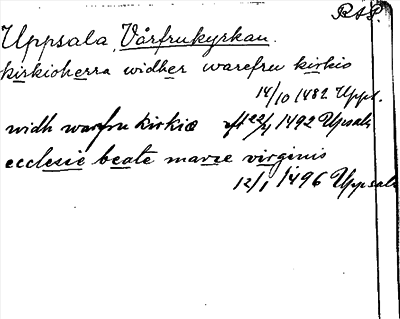 RAP.
Uppsala, Vårfrukyrkan.
kirkioherra widher warefru kirkio
14/10 1482 Upps.
widh warefru kirkiæ aft 22/4 1492 Upsala
ecclesie beate marie virginis
12/1 1496 Uppsala